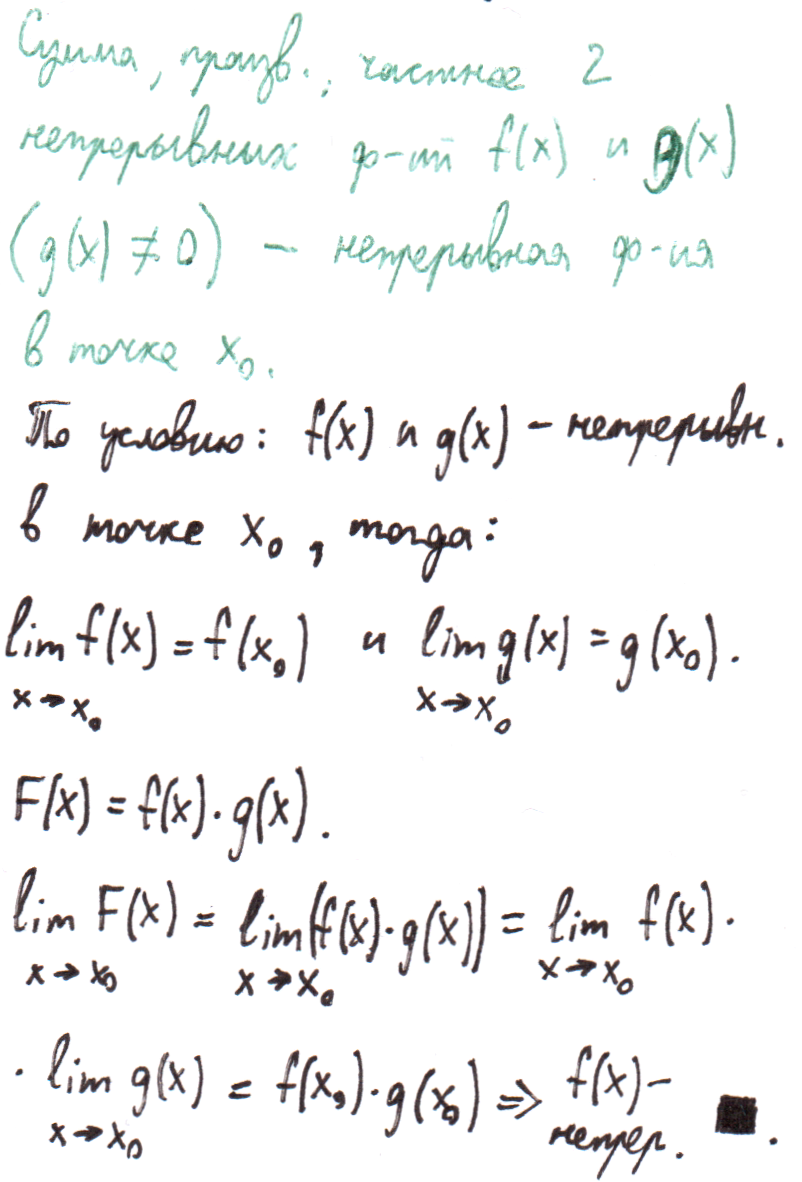 Сумма, произв., частное 2
непрерывных ф-ий f(x) и g(x)
(g(x) ≠ 0) – непрерывная ф-ия
в точке x₀.
По условию: f(x) и g(x) – непрерывн.
в точке x₀, тогда:
lim f(x) = f(x₀) и lim g(x) = g(x₀).
x→x₀ x→x₀
F(x) = f(x)·g(x).
lim F(x) = lim(f(x)·g(x)) = lim f(x)·
x→x₀ x→x₀ x→x₀
· lim g(x) = f(x₀)·g(x₀) ⇒ f(x) –
x→x₀ непрер. ■.